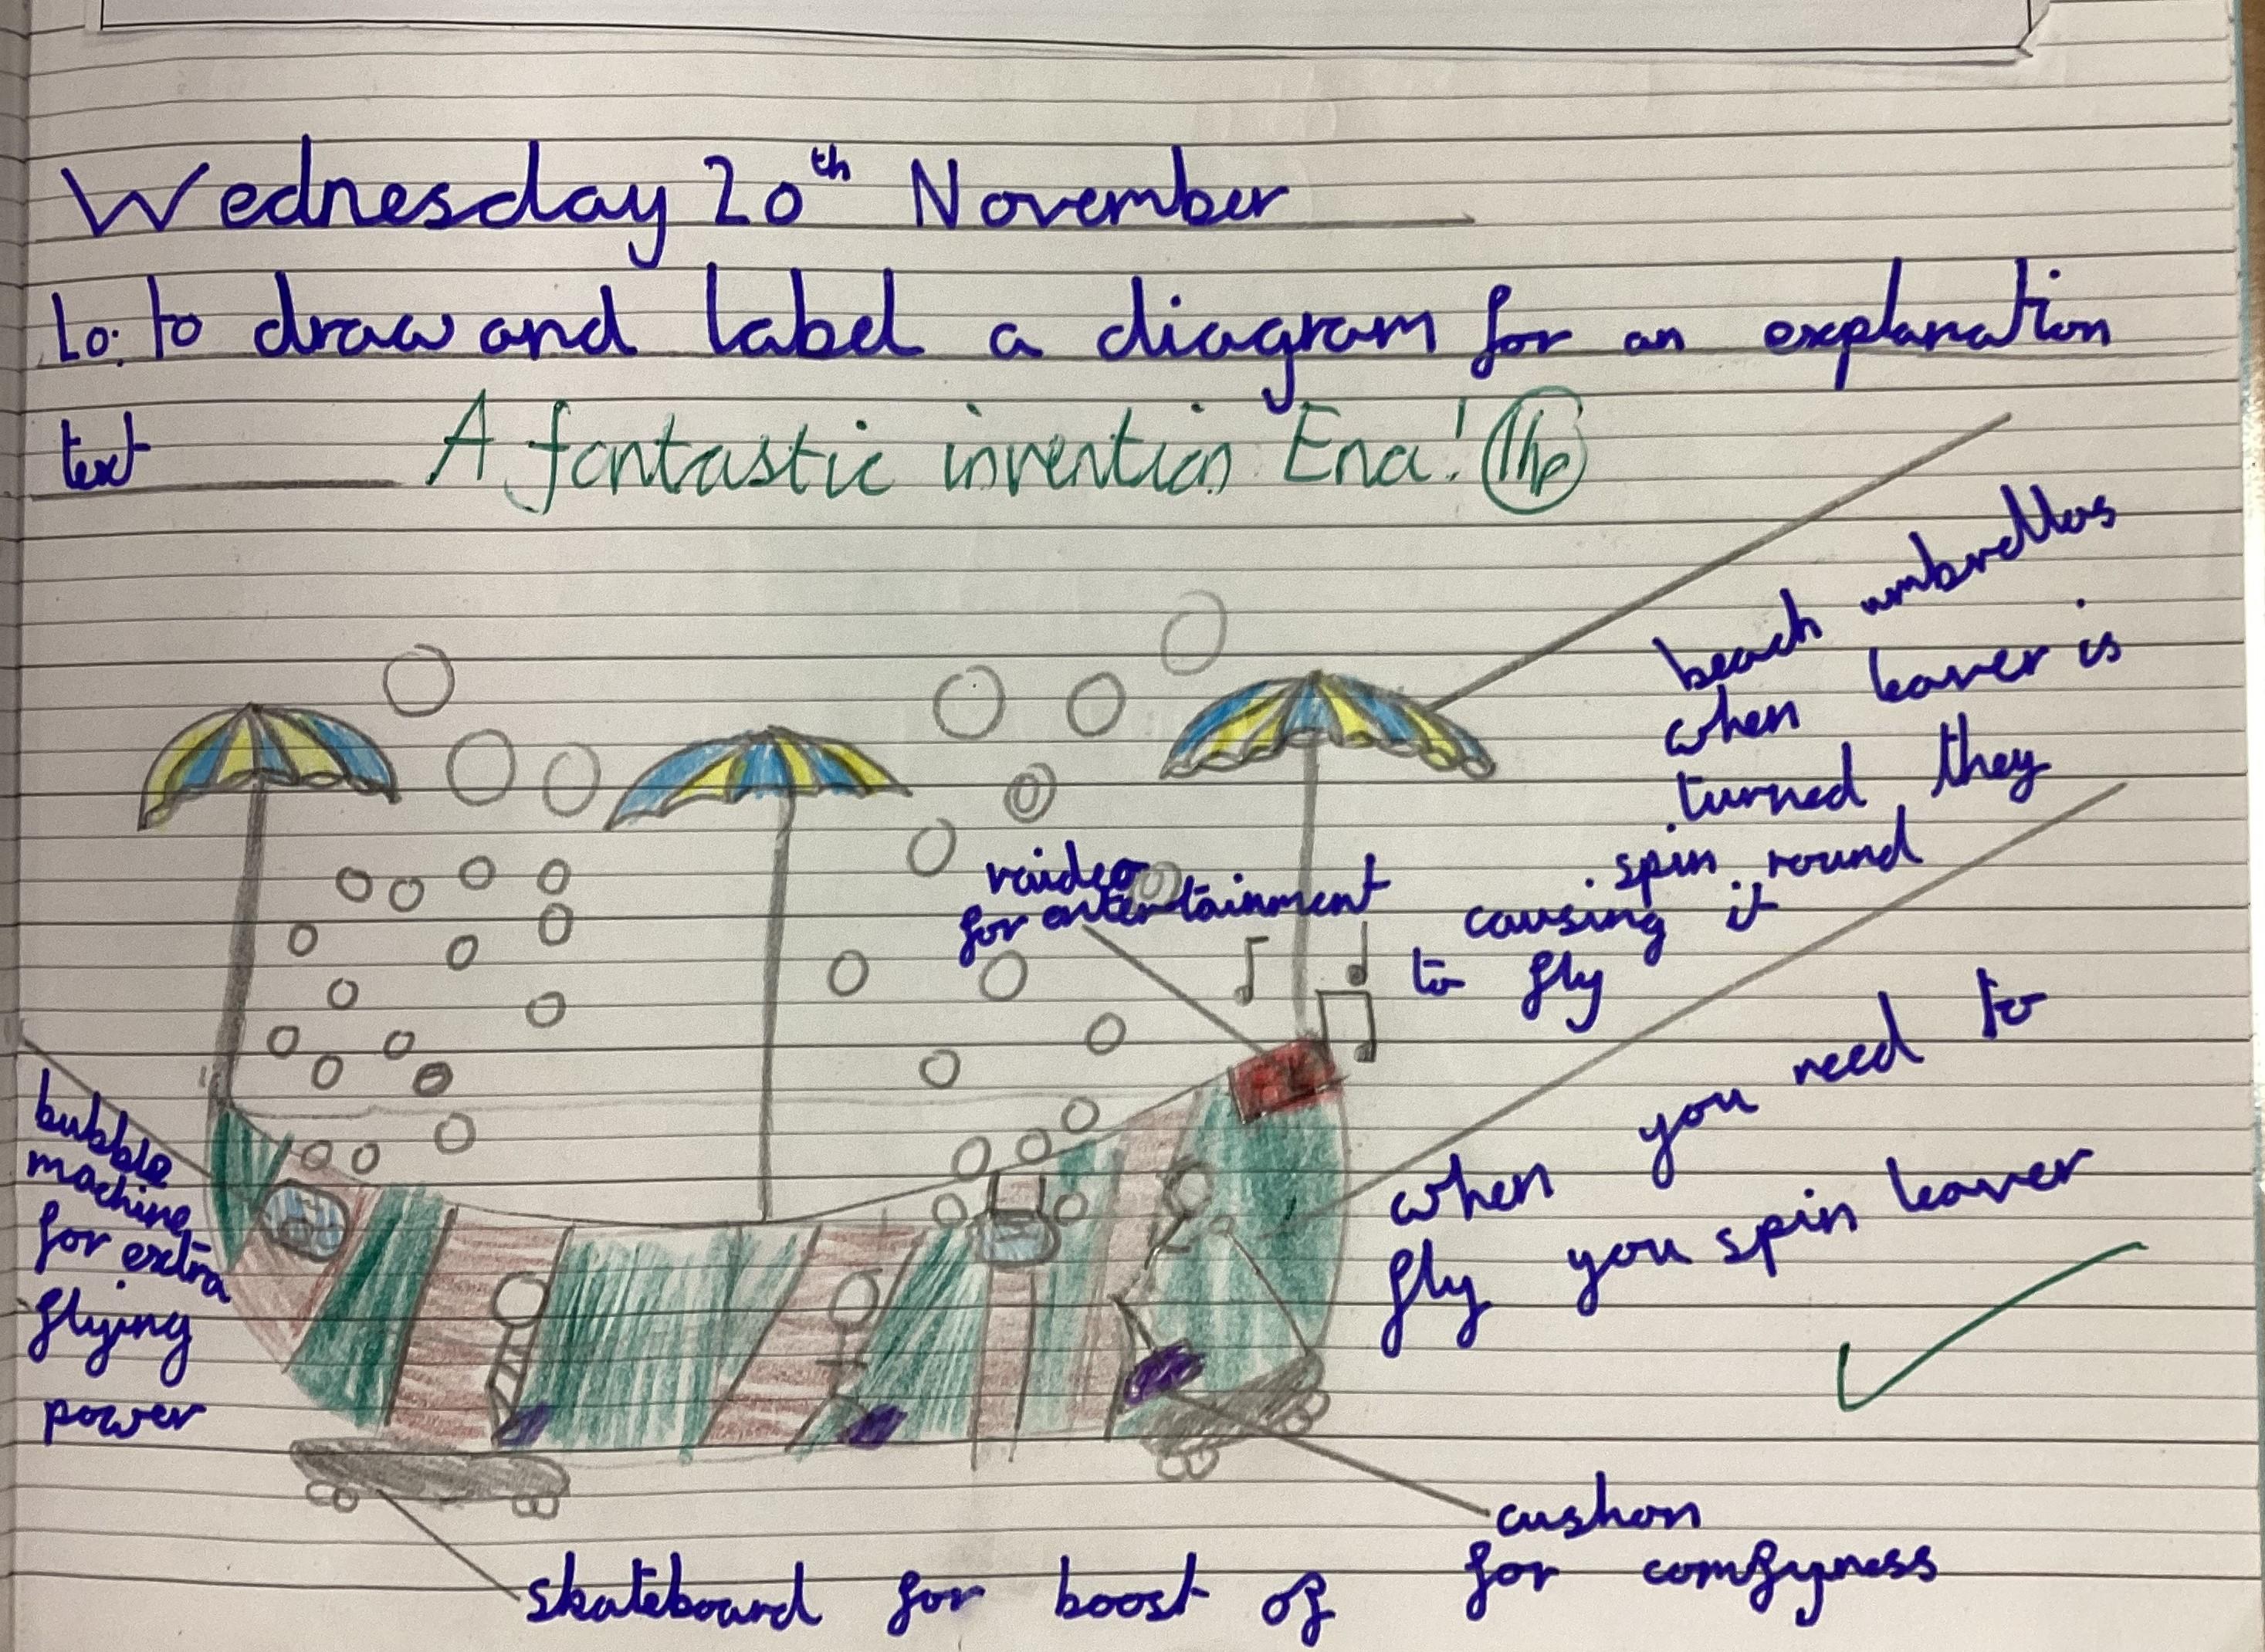 Wednesday 20th November
Lo: to draw and label a diagram for an explanation
text
A fantastic invention Ena!
beach umbrellas
when leaver is
turned they
spin round
causing it
to fly
raideo
for entertainment
when you need to
fly you spin leaver
bubble
machine
for extra
flying
power
cushon
for comfyness
skateboard for boost of